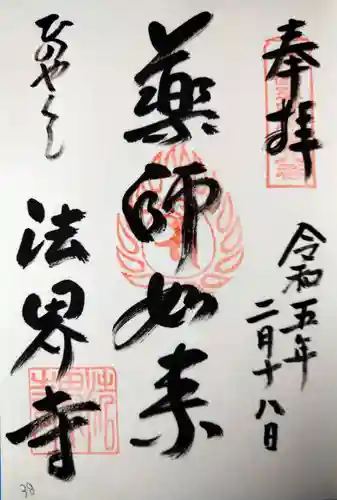 奉拝
令和五年
二月十八日
薬師如来
ひのやくし
法界寺
法界寺
38